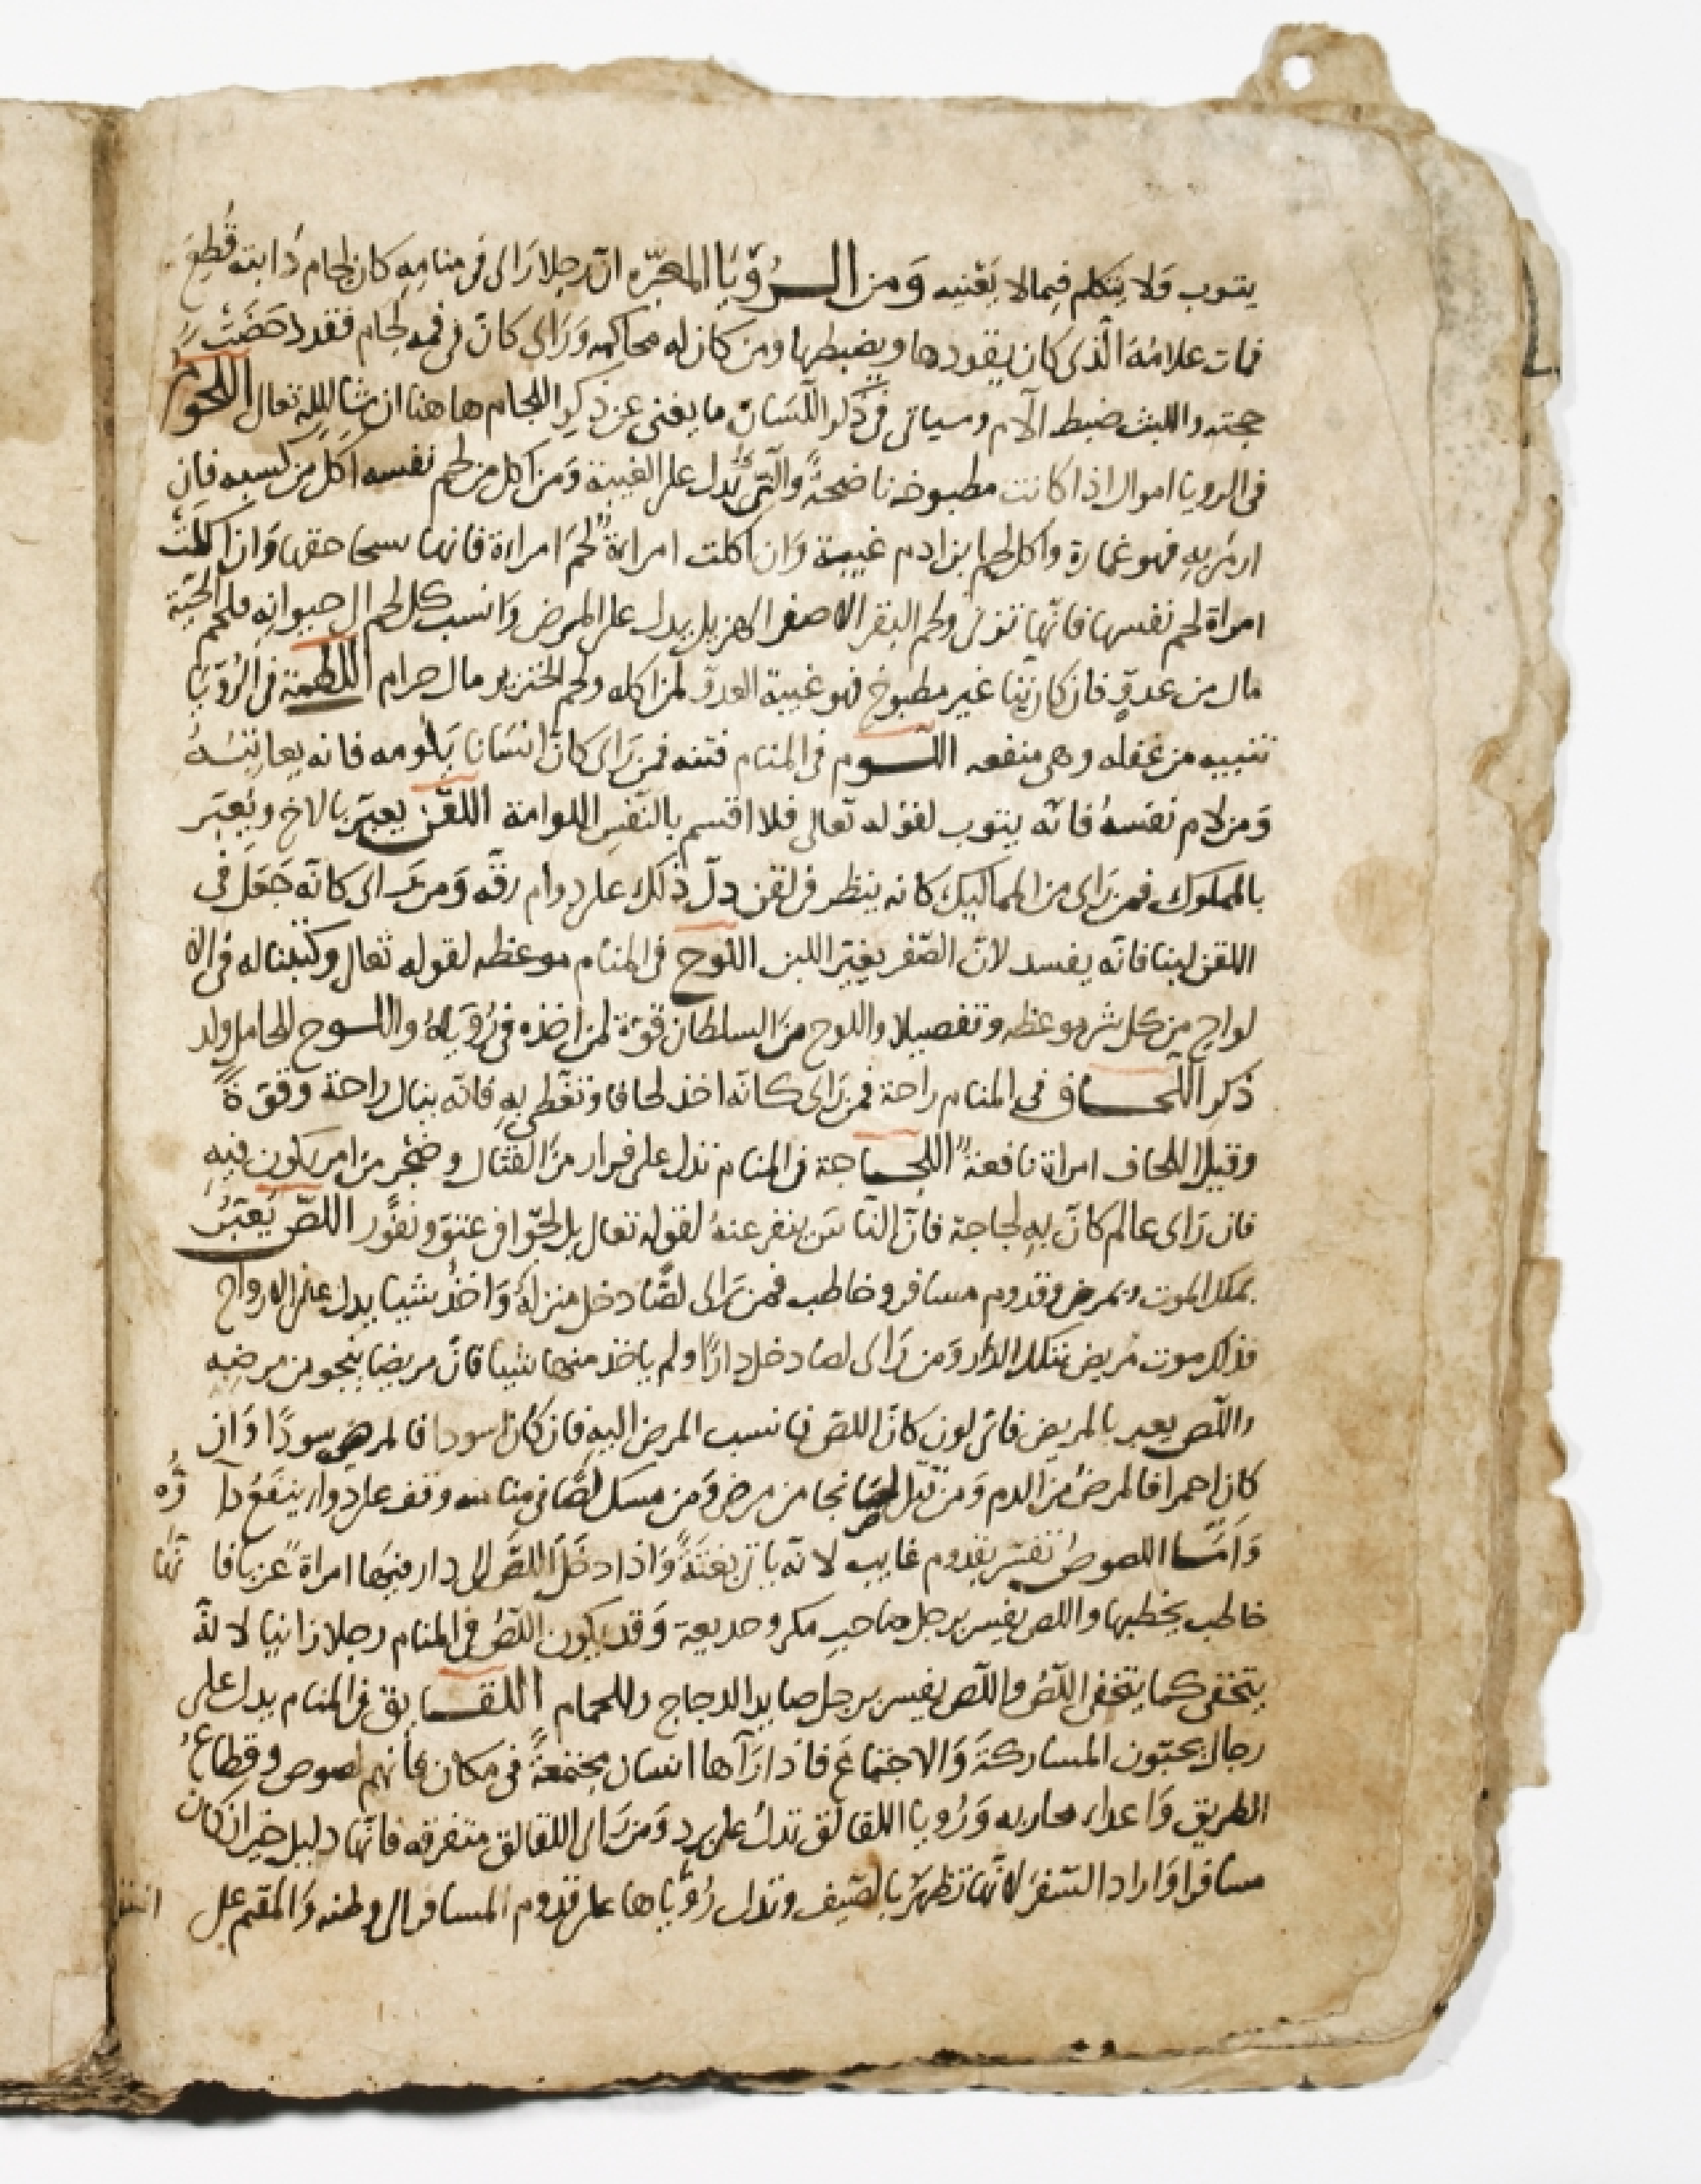 يتوب وَلا يتكلم فيما لا يَعْنيه وَمن الرُؤيَا المعبّره انّ رجلا رَاى فى منامِهِ كان لجام دَابته قُطِعَ
فمات غلامُهُ الّذى كان يقودها ويضبطها ومن كان له محاكمه وَرَاى كانّ فى فمه لجام فقد دحضَتْ
حجته واللبث ضبط الآم وسياتى فى ذكر اللّسَان ما يغنى عن ذكر اللجام هاهنا ان شا الله تعالى اللحوم
فى الرويا اموال اذا كانت مطبوخه ناضجةً وَالنّى تُدل على الغيبة وَمن اكل من لحم نفسه اكل من كسبه فان
امراة لحم نفسها فانّها تزنى ولحم البقر الاصفر الهزيل يدل على المرض وَانسب كل لحم الى حيوانه فلحم الحيّة
مال من عدوّ فان كان نيّا غير مطبوخ فهو غيبة العدوّ لمن اكله ولحم الخنزير مال حرام اللطمة فى الرُؤيَا
تنبيه من غفله وهى منفعه اللوم فى المنام فتنه فمن رَاى كانّ انسَانا يَلومه فانه
وَمن لام نفسَهُ فانّه يتوب لقوله تعالى فلا اقسم بالنّفس اللوامة اللقن يعبّر بالاخ ويُعبّر
بالمملوك فمن رَاى من المماليك كانه ينظر فى لقن دلّ ذلك على دوام رقّه وَمن رَاى كانّه جَعَل فى
اللقن لبنا فانّه يفسد لانّ الصّفر يغيّر اللبن اللوح فى المنام موعظه لقوله تعالى وكتبنا له فى الا
لواح من كل شى موعظه وتفصيلا واللوح منَ السلطان قوّة لمن اخذه فى رُؤيَاهُ واللوح للحامل ولد
ذكر اللحاف فى المنام راحة فمن رَاى كانّه اخذ لحافا وتغطى بهِ فانّه ينال راحة وقوّةً
وقيل اللحاف امراة نافعةً اللجاجة فى المنام تدل على فرار منَ القتال وضجْر من امر يكون فيهِ
فان رَاى عالم كانّ بهِ لجاجة فانّ النّاسَ ينفر عنهُ لقوله تعالى بل لجّوا فى عتوّ ونفُور اللصّ يُعَبّرُ
بملك الموت وبمرض وقدوم مسافر وخاطب فمن رَاى لصًّا دخل منزلهُ وَاخذ شيئا يدل على الارواح
فذلك موت مريض بتلك الدّار وَمن رَاى لصا دخل دارًا ولم ياخذ منها شيئا فانّ مريضا ينجو من مرضِهِ
واللّص يعبر بالمريض فاىّ لون كانَ اللص فانسب المرض اليهِ فان كان اسودا فالمرض سودًا وَان
كان احمرا فالمرضُ منَ الدم وَمن قتل لصا نجا من مرض وَمن مسك لصًّا فى منامه وقف على دوا ينفَعُ دآ ؤُه
وَامّا اللصوص تفسّر بقدوم غايب لانّه ياتى بغتةً وَاذا دخَلَ اللصّ الى دار فيهَا امراة عزبا فا نّها
خاطب يخطبها واللص يفسر برجل صاحبِ مكر وخديعة وَقد يكون اللصُ فى المنام رجلا زانيا لانّه
يتخفى كما يتخفى اللصُ واللّص يفسر برجل صايد الدجاج والحمام اللقالق فى المنام يدل على
رجال يحبّون المشاركةَ وَالاجتماعَ فاذا رَآها انسان مجتمعةً فى مكان فانهم لصوص وقطاعُ
الطريق وَاعداء محاربه وَرُويا اللقالق تدلُ على برد وَمن رَاى اللقالق متفرقه فانّها دليل خير ان كان
مسافرا وَاراد السّفرَ لانّها تظهرُ بالصّيف وتدل رُؤيَاها على قدوم المسافر الى وطنه وَالمقيم على